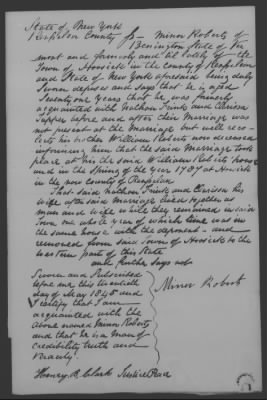 State of New York
Rensselaer County ss Minor Roberts of
Benington State of Ver
mont and formerly and til lately of the
Town of Hoosick in the County of Rensselaer
and State of New York aforesaid being duly
Sworn deposes and says that he is aged
Seventy one Years that he was formerly
acquainted with Nathan and Clarissa
before and after their Marriage was
not present at the Marriage but well reco-
lects his brother William Roberts now deceased
informing him that the said Marriage took
place at his the said William Roberts' house
and in the Spring of the year 1789 at Hoosick
in the now County of Rensselaer
That said Nathan and Clarissa his
wife after said Marriage lived together as
man and wife while they remained in said
Town one whole year of which time was in
the same house with the deponent - and
removed from said Town of Hoosick to the
western part of this State
and further says not
Sworn and Subscribed
before me this twentieth
day of May 1845 and
I certify that I am
acquainted with the
above named Minor Roberts
and that he is a man of
credibility truth and
veracity.
Minor Robert
Honary B. Clark Justice Peace